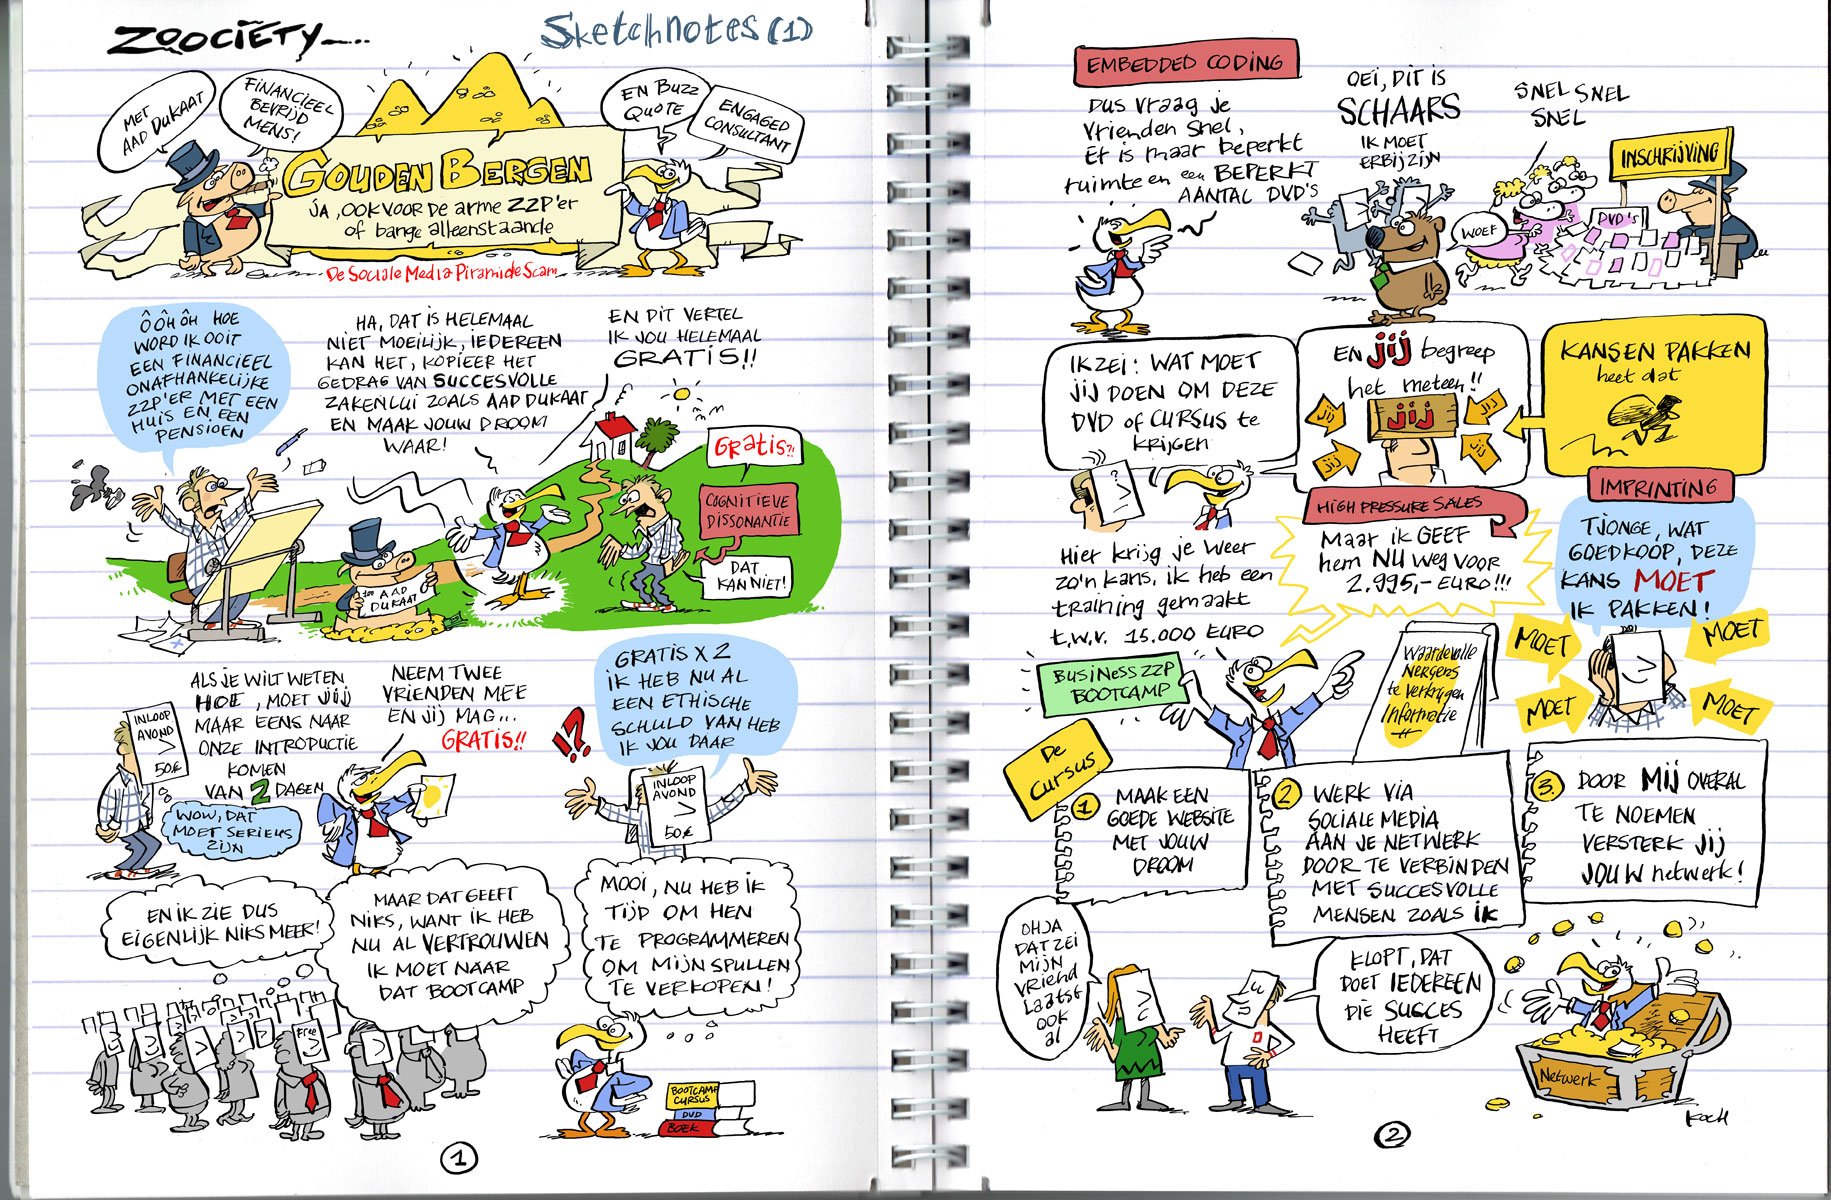 ZOOCIETY.....
Sketchnotes (1)
MET
AAD DUKAAT
FINANCIEEL
BEVRIJD
MENS!
EN BUZZ
QUOTE
ENGAGED
CONSULTANT
GOUDEN BERGEN
JA, OOK VOOR DE ARME ZZP'er
of bange alleenstaande
De Sociale Media Piramide Scam
ÔÔH ÔH HOE
WORD IK OOIT
EEN FINANCIEEL
ONAFHANKELIJKE
ZZP'ER MET EEN
HUIS EN EEN
PENSIOEN
HA, DAT IS HELEMAAL
NIET MOEILIJK, IEDEREEN
KAN HET, KOPIEER HET
GEDRAG VAN SUCCESVOLLE
ZAKENLUI ZOALS AAD DUKAAT
EN MAAK JOUW DROOM
WAAR!
EN DIT VERTEL
IK JOU HELEMAAL
GRATIS!!
GRATIS?!
COGNITIEVE
DISSONANTIE
DAT
KAN NIET!
100 AAD
DUKAAT
INLOOP
AVOND
>
50€
ALS JE WILT WETEN
HOE, MOET JIJ
MAAR EENS NAAR
ONZE INTRODUCTIE
KOMEN
VAN 2 DAGEN
WOW, DAT
MOET SERIEUS
ZIJN
NEEM TWEE
VRIENDEN MEE
EN JIJ MAG...
GRATIS!!
!?
GRATIS X 2
IK HEB NU AL
EEN ETHISCHE
SCHULD VAN HEB
IK JOU DAAR
INLOOP
AVOND
>
50€
EN IK ZIE DUS
EIGENLIJK NIKS MEER!
MAAR DAT GEEFT
NIKS, WANT IK HEB
NU AL VERTROUWEN
IK MOET NAAR
DAT BOOTCAMP
MOOI, NU HEB IK
TIJD OM HEN
TE PROGRAMMEREN
OM MIJN SPULLEN
TE VERKOPEN!
Free
BOOTCAMP
CURSUS
DVD
BOEK
1
EMBEDDED CODING
Dus vraag je
vrienden snel,
Er is maar beperkt
ruimte en een BEPERKT
AANTAL DVD'S
OEI, DIT IS
SCHAARS
IK MOET
ERBIJ ZIJN
SNEL SNEL
SNEL
INSCHRIJVING
WOEF
DVD's
IK ZEI: WAT MOET
JIJ DOEN OM DEZE
DVD of CURSUS te
krijgen
EN jij begreep
het meteen!!
jij
jij
jij
jij
jij
KANSEN PAKKEN
heet dat
HIGH PRESSURE SALES
IMPRINTING
Hier krijg je weer
zo'n kans, ik heb een
training gemaakt
t.w.v. 15.000 EURO
Maar ik GEEF
hem NU weg voor
2.995,- EURO!!!
TJONGE, WAT
GOEDKOOP, DEZE
KANS MOET
IK PAKKEN!
MOET
MOET
MOET
MOET
BUSINESS ZZP
BOOTCAMP
Waardevolle
Nergens
te verkrijgen
Informatie
De
Cursus
1
MAAK EEN
GOEDE WEBSITE
MET JOUW
DROOM
2
WERK VIA
SOCIALE MEDIA
AAN JE NETWERK
DOOR TE VERBINDEN
MET SUCCESVOLLE
MENSEN ZOALS IK
3.
DOOR MIJ OVERAL
TE NOEMEN
VERSTERK JIJ
JOUW netwerk!
OH JA
DAT ZEI
MIJN
VRIEND
LAATST
OOK
al
KLOPT, DAT
DOET IEDEREEN
DIE SUCCES
HEEFT
Netwerk
Koch
2